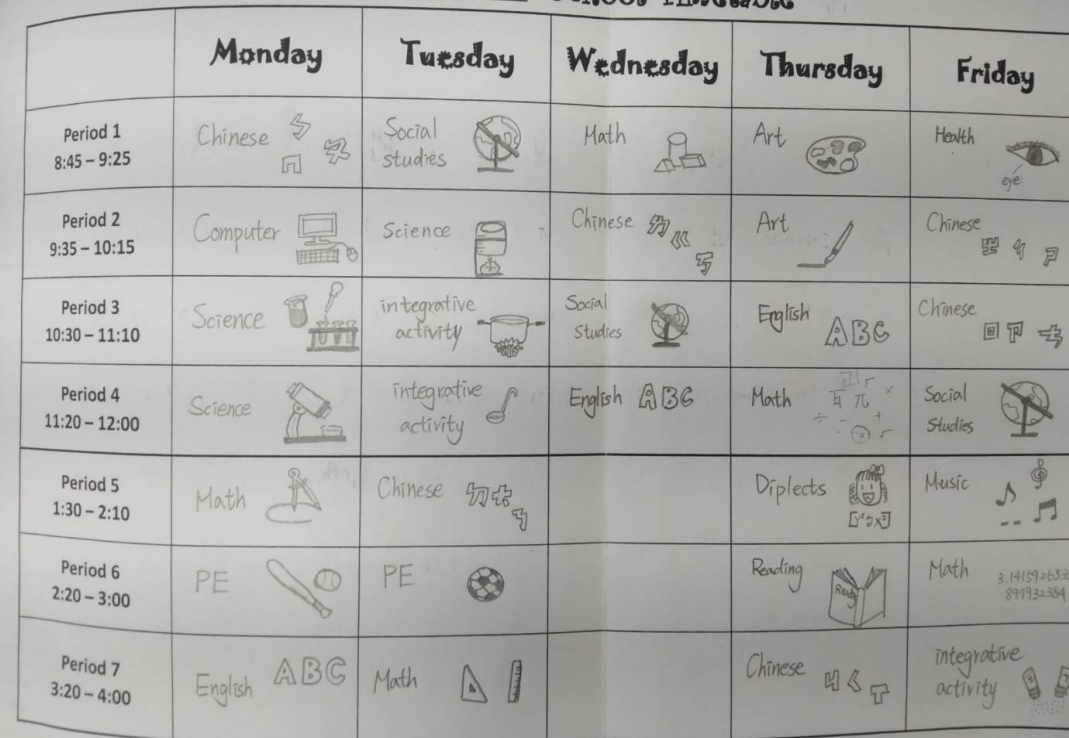 School Timetable
Monday Tuesday Wednesday Thursday Friday
Period 1
8:45 – 9:25
Chinese
Social
studies
Math
Art
Health
eye
Period 2
9:35 – 10:15
Computer
Science
Chinese
Art
Chinese
Period 3
10:30 – 11:10
Science
integrative
activity
Social
Studies
English ABC
Chinese
Period 4
11:20 – 12:00
Science
integrative
activity
English ABC
Math
Social
Studies
Period 5
1:30 – 2:10
Math
Chinese
Diplects
Music
Period 6
2:20 – 3:00
PE
PE
Reading
Math
Period 7
3:20 – 4:00
English ABC
Math
Chinese
integrative
activity